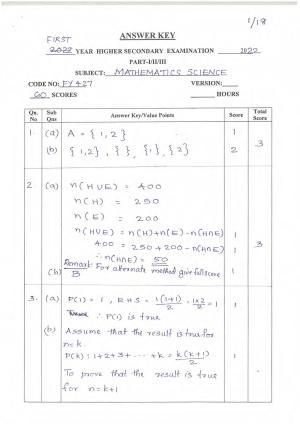 1/18
ANSWER KEY
FIRST
2022 YEAR HIGHER SECONDARY EXAMINATION 2022
PART-I/II/III
SUBJECT: MATHEMATICS SCIENCE
CODE NO: FY 427 VERSION:
60 SCORES HOURS
Qn. No Sub Qns Answer Key/Value Points Score Total Score
1. (a) A = {1,2} 1
(b) {1,2}, { }, {1}, {2} 2 3
2. (a) n(HUE) = 400
n(H) = 250
n(E) = 200
n(HUE) = n(H)+n(E)-n(H∩E) 1
400 = 250+200-n(H∩E) 1 3
n(H∩E) = 50
Remark: For alternate method give full score
(b) B 1
3. (a) P(1) = 1, RHS = 1(1+1)/2 = 1×2/2 = 1 1
∴ P(1) is true
(b) Assume that the result is true for
n=k.
P(k): 1+2+3+ --- +k = k(k+1)/2
To prove that the result is true
for n=k+1